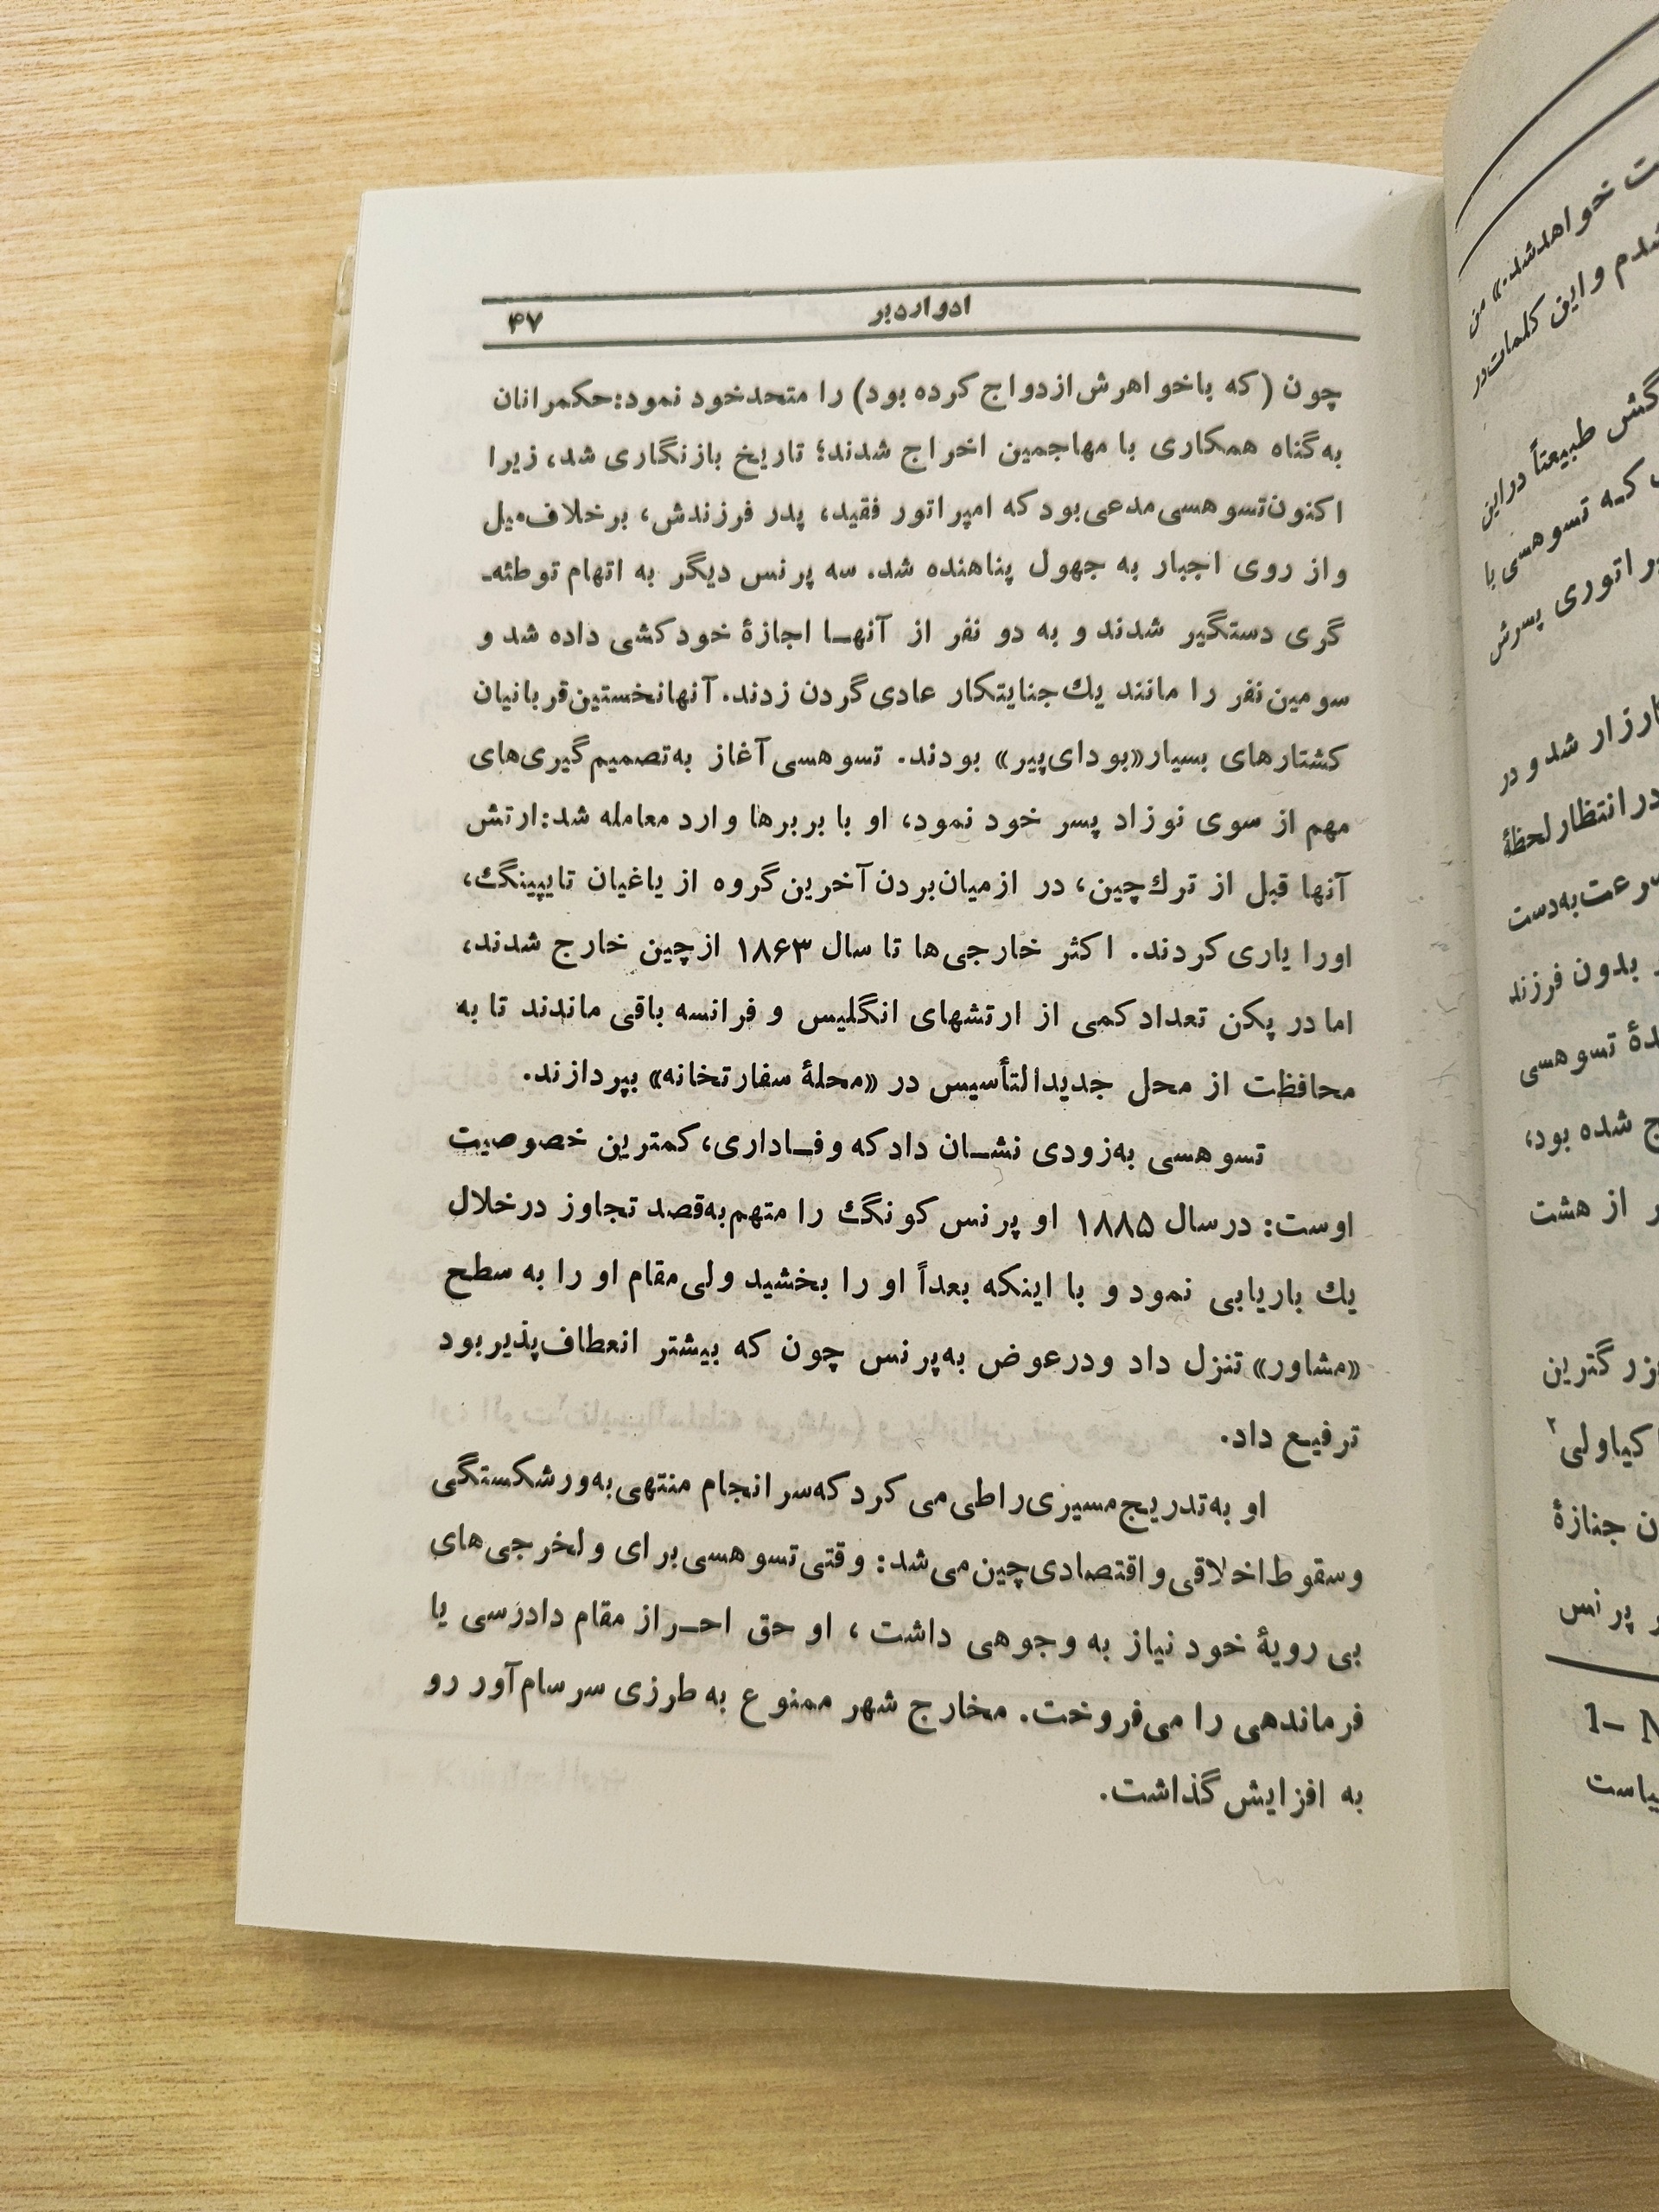 ادوارد بر
۴۷
چون (که باخواهرش ازدواج کرده بود) را متحدخود نمود: حکمرانان
به گناه همکاری با مهاجمین اخراج شدند؛ تاریخ بازنگاری شد، زیرا
اکنون تسوهسی مدعی بود که امپراتور فقید، پدر فرزندش، برخلاف میل
واز روی اجبار به جهول پناهنده شد. سه پرنس دیگر به اتهام توطئه‌ـ
گری دستگیر شدند و به دو نفر از آنهـا اجازهٔ خودکشی داده شد و
سومین نفر را مانند یك جنایتکار عادی گردن زدند. آنها نخستین قربانیان
کشتارهای بسیار «بودای پیر» بودند. تسوهسی آغاز به تصمیم گیری‌های
مهم از سوی نوزاد پسر خود نمود، او با بربرها وارد معامله شد: ارتش
آنها قبل از ترك چین، در ازمیان بردن آخرین گروه از یاغیان تایپینگ،
اورا یاری کردند. اکثر خارجی‌ها تا سال ۱۸۶۳ ازچین خارج شدند،
اما در پکن تعداد کمی از ارتشهای انگلیس و فرانسه باقی ماندند تا به
محافظت از محل جدیدالتأسیس در «محلهٔ سفارتخانه» بپردازند.
تسوهسی به‌زودی نشـان داد که وفـاداری، کمترین خصوصیت
اوست: درسال ۱۸۸۵ او پرنس کونگ را متهم به‌قصد تجاوز درخلال
یك باریابی نمود و با اینکه بعداً او را بخشید ولی مقام او را به سطح
«مشاور» تنزل داد ودرعوض به‌پرنس چون که بیشتر انعطاف‌پذیر بود
ترفیع داد.
او به‌تدریج مسیری راطی می کرد که سرانجام منتهی به‌ورشکستگی
وسقوط اخلاقی و اقتصادی چین می‌شد: وقتی تسوهسی برای ولخرجی‌های
بی رویهٔ خود نیاز به وجوهی داشت، او حق احـراز مقام دادرسی یا
فرماندهی را می‌فروخت. مخارج شهر ممنوع به طرزی سرسام‌آور رو
به افزایش گذاشت.
خواهدشد.» من
شدم و این کلمات در
طبیعتاً دراین
کـه تسوهسی با
پسرش
شد و در
در انتظار لحظهٔ
به‌دست
بدون فرزند
تسوهسی
شده بود،
از هشت
بزرگترین
کیاولی۲
جنازهٔ
پرنس
1–